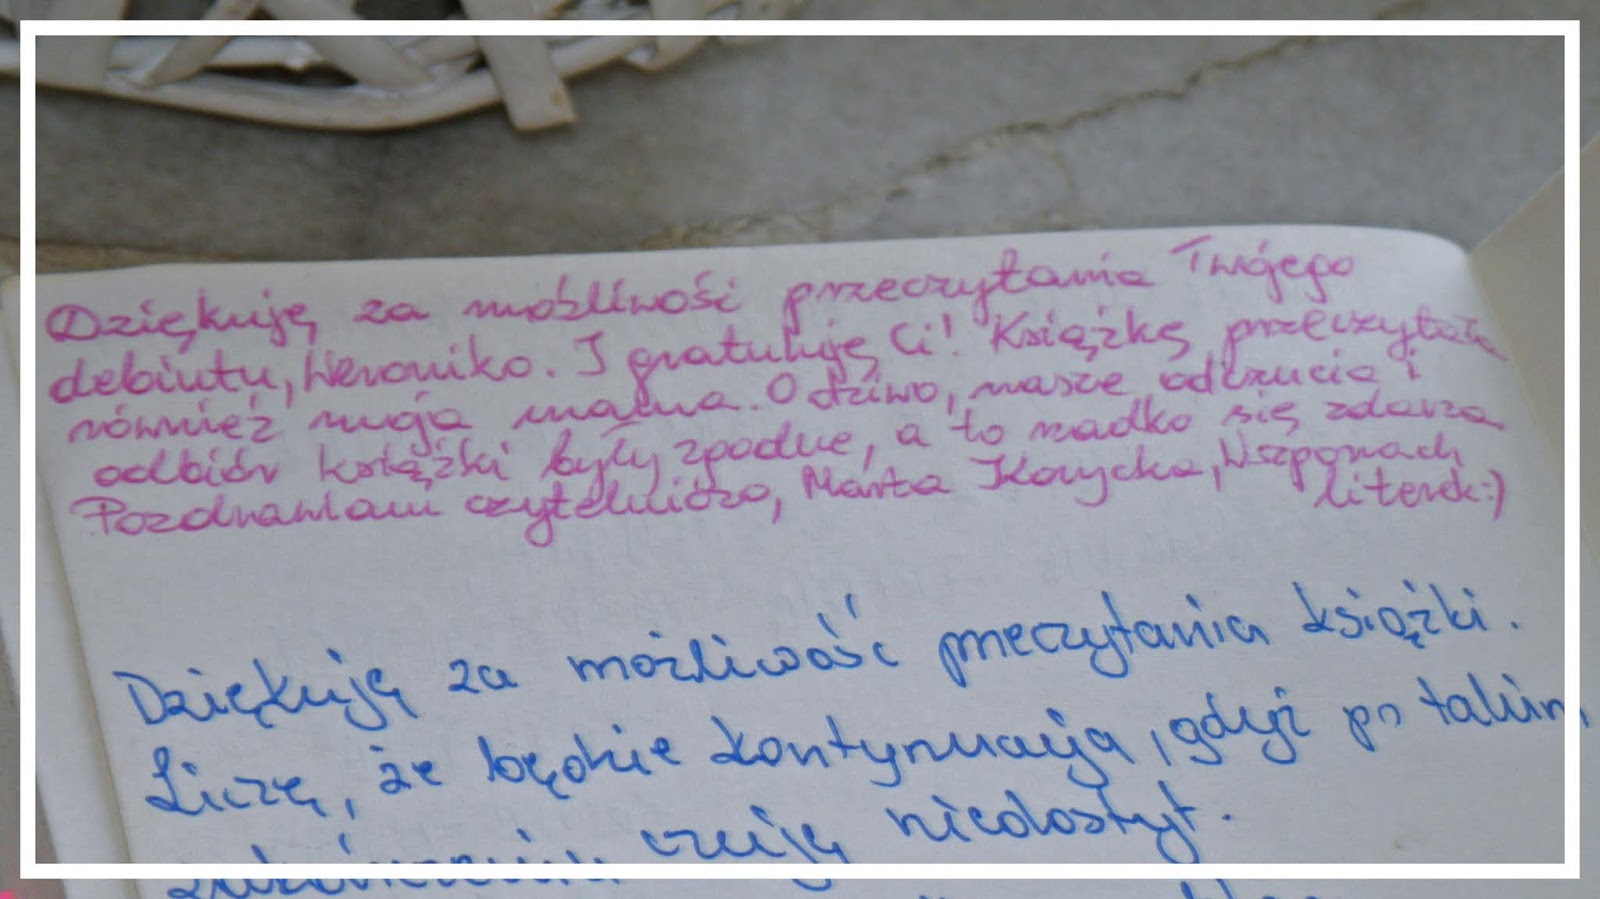 Dziękuję za możliwość przeczytania Twojego
debiutu, Weroniko. I gratuluję Ci! Książkę przeczytała
również moja mama. O dziwo, nasze odczucia i
odbiór książki były zgodne, a to rzadko się zdarza
Pozdrawiam czytelniczo, Marta Korycka, W szponach
literek:)
Dziękuję za możliwość przeczytania książki.
Liczę, że będzie kontynuacja, gdyż po takim
zakończeniu czuję niedosyt.